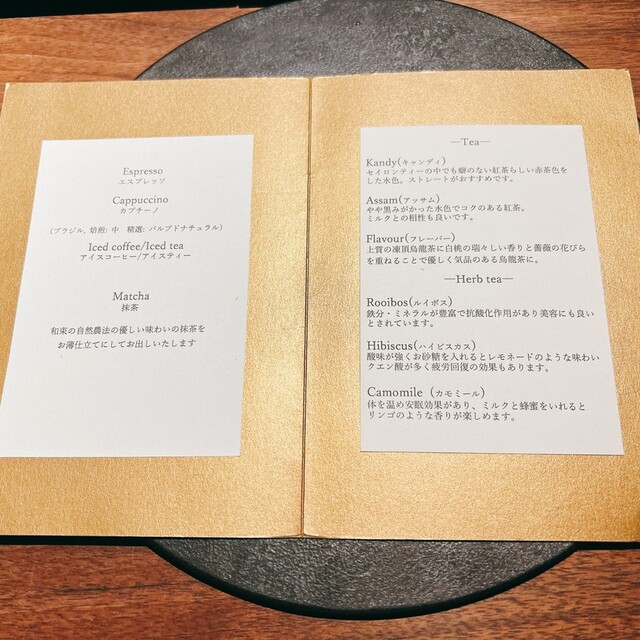 Espresso
エスプレッソ
Cappuccino
カプチーノ
(ブラジル, 焙煎: 中　精選: パルプドナチュラル)
Iced coffee/Iced tea
アイスコーヒー/アイスティー
Matcha
抹茶
和束の自然農法の優しい味わいの抹茶を
お薄仕立てにしてお出しいたします
—Tea—
Kandy(キャンディ)
セイロンティーの中でも癖のない紅茶らしい赤茶色を
した水色。ストレートがおすすめです。
Assam(アッサム)
やや黒みがかった水色でコクのある紅茶。
ミルクとの相性も良いです。
Flavour(フレーバー)
上質の凍頂烏龍茶に白桃の瑞々しい香りと薔薇の花びら
を重ねることで優しく気品のある烏龍茶に。
—Herb tea—
Rooibos(ルイボス)
鉄分・ミネラルが豊富で抗酸化作用があり美容にも良い
とされています。
Hibiscus(ハイビスカス)
酸味が強くお砂糖を入れるとレモネードのような味わい
クエン酸が多く疲労回復の効果もあります。
Camomile（カモミール）
体を温め安眠効果があり、ミルクと蜂蜜をいれると
リンゴのような香りが楽しめます。